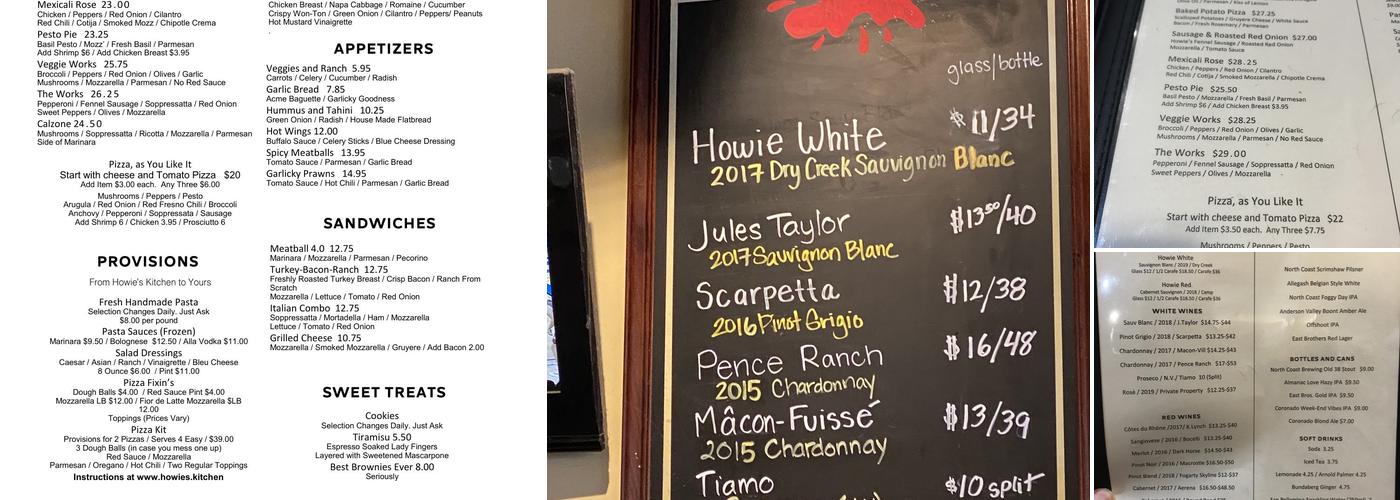 Mexicali Rose 23.00
Chicken / Peppers / Red Onion / Cilantro
Red Chili / Cotija / Smoked Mozz / Chipotle Crema
Pesto Pie 23.25
Basil Pesto / Mozz' / Fresh Basil / Parmesan
Add Shrimp $6 / Add Chicken Breast $3.95
Veggie Works 25.75
Broccoli / Peppers / Red Onion / Olives / Garlic
Mushrooms / Mozzarella / Parmesan / No Red Sauce
The Works 26.25
Pepperoni / Fennel Sausage / Soppressatta / Red Onion
Sweet Peppers / Olives / Mozzarella
Calzone 24.50
Mushrooms / Soppressatta / Ricotta / Mozzarella / Parmesan
Side of Marinara
Pizza, as You Like It
Start with cheese and Tomato Pizza $20
Add Item $3.00 each. Any Three $6.00
Mushrooms / Peppers / Pesto
Arugula / Red Onion / Red Fresno Chili / Broccoli
Anchovy / Pepperoni / Soppressata / Sausage
Add Shrimp 6 / Chicken 3.95 / Prosciutto 6
PROVISIONS
From Howie's Kitchen to Yours
Fresh Handmade Pasta
Selection Changes Daily. Just Ask
$8.00 per pound
Pasta Sauces (Frozen)
Marinara $9.50 / Bolognese $12.50 / Alla Vodka $11.00
Salad Dressings
Caesar / Asian / Ranch / Vinaigrette / Bleu Cheese
8 Ounce $6.00 / Pint $11.00
Pizza Fixin's
Dough Balls $4.00 / Red Sauce Pint $4.00
Mozzarella LB $12.00 / Fior de Latte Mozzarella $LB
12.00
Toppings (Prices Vary)
Pizza Kit
Provisions for 2 Pizzas / Serves 4 Easy / $39.00
3 Dough Balls (in case you mess one up)
Red Sauce / Mozzarella
Parmesan / Oregano / Hot Chili / Two Regular Toppings
Instructions at www.howies.kitchen
Chicken Breast / Napa Cabbage / Romaine / Cucumber
Crispy Won-Ton / Green Onion / Cilantro / Peppers/ Peanuts
Hot Mustard Vinaigrette
.
APPETIZERS
Veggies and Ranch 5.95
Carrots / Celery / Cucumber / Radish
Garlic Bread 7.85
Acme Baguette / Garlicky Goodness
Hummus and Tahini 10.25
Green Onion / Radish / House Made Flatbread
Hot Wings 12.00
Buffalo Sauce / Celery Sticks / Blue Cheese Dressing
Spicy Meatballs 13.95
Tomato Sauce / Parmesan / Garlic Bread
Garlicky Prawns 14.95
Tomato Sauce / Hot Chili / Parmesan / Garlic Bread
SANDWICHES
Meatball 4.0 12.75
Marinara / Mozzarella / Parmesan / Pecorino
Turkey-Bacon-Ranch 12.75
Freshly Roasted Turkey Breast / Crisp Bacon / Ranch From
Scratch
Mozzarella / Lettuce / Tomato / Red Onion
Italian Combo 12.75
Soppressatta / Mortadella / Ham / Mozzarella
Lettuce / Tomato / Red Onion
Grilled Cheese 10.75
Mozzarella / Smoked Mozzarella / Gruyere / Add Bacon 2.00
SWEET TREATS
Cookies
Selection Changes Daily. Just Ask
Tiramisu 5.50
Espresso Soaked Lady Fingers
Layered with Sweetened Mascarpone
Best Brownies Ever 8.00
Seriously
glass/bottle
Howie White $11/34
2017 Dry Creek Sauvignon Blanc
Jules Taylor $13⁵⁰/40
2017 Sauvignon Blanc
Scarpetta $12/38
2016 Pinot Grigio
Pence Ranch $16/48
2015 Chardonnay
Mâcon-Fuissé $13/39
2015 Chardonnay
Tiamo $10 split
Baked Potato Pizza $27.25
Scalloped Potatoes / Gruyere Cheese / White Sauce
Bacon / Fresh Rosemary / Parmesan
Sausage & Roasted Red Onion $27.00
Howie's Fennel Sausage / Roasted Red Onion
Mozzarella / Tomato Sauce
Mexicali Rose $28.25
Chicken / Peppers / Red Onion / Cilantro
Red Chili / Cotija / Smoked Mozzarella / Chipotle Crema
Pesto Pie $25.50
Basil Pesto / Mozzarella / Fresh Basil / Parmesan
Add Shrimp $6 / Add Chicken Breast $3.95
Veggie Works $28.25
Broccoli / Peppers / Red Onion / Olives / Garlic
Mushrooms / Mozzarella / Parmesan / No Red Sauce
The Works $29.00
Pepperoni / Fennel Sausage / Soppressatta / Red Onion
Sweet Peppers / Olives / Mozzarella
Pizza, as You Like It
Start with cheese and Tomato Pizza $22
Add Item $3.50 each. Any Three $7.75
Mushrooms / Peppers / Pesto
Howie White
Sauvignon Blanc / 2019 / Dry Creek
Glass $12 / 1/2 Carafe $18.50 / Carafe $36
Howie Red
Cabernet Sauvignon / 2018 / Camp
Glass $12 / 1/2 Carafe $18.50 / Carafe $36
WHITE WINES
Sauv Blanc / 2018 / J.Taylor $14.75-$44
Pinot Grigio / 2018 / Scarpetta $13.25-$42
Chardonnay / 2017 / Macon-Vill $14.25-$43
Chardonnay / 2017 / Pence Ranch $17-$53
Prosecco / N.V./ Tiamo 10 (Split)
Rosé / 2019 / Private Property $12.25-$37
RED WINES
Côtes du Rhône /2017/ K.Lynch $13.25-$40
Sangiovese / 2016 / Bocelli $13.25-$40
Merlot / 2016 / Dark Horse $14.50-$43
Pinot Noir / 2016 / Macrostie $16.50-$50
Pinot Blend / 2018 / Fogarty Skyline $12-$37
Cabernet / 2017 / Aerena $16.50-$48.50
North Coast Scrimshaw Pilsner
Allegash Belgian Style White
North Coast Foggy Day IPA
Anderson Valley Boont Amber Ale
Offshoot IPA
East Brothers Red Lager
BOTTLES AND CANS
North Coast Brewing Old 38 Stout $9.00
Almanac Love Hazy IPA $9.50
East Bros. Gold IPA $9.50
Coronado Week-End Vibes IPA $9.00
Coronado Blond Ale $7.00
SOFT DRINKS
Soda 3.25
Iced Tea 3.75
Lemonade 4.25 / Arnold Palmer 4.25
Bundaberg Ginger 4.75